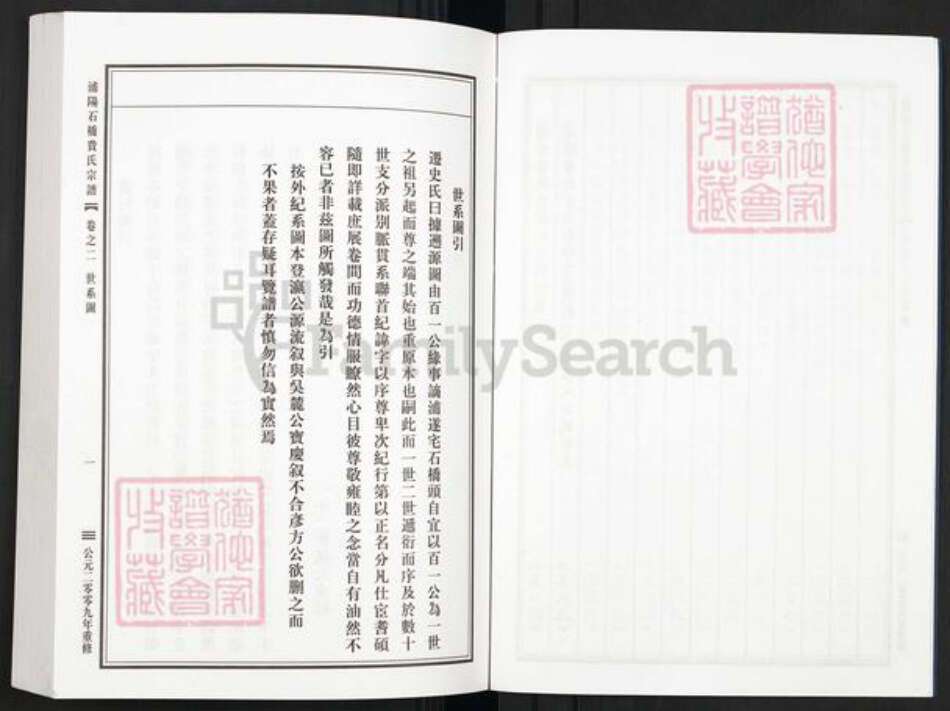 世系圖引
遷史氏曰據遡源圖由百一公緣事謫浦遂宅石橋頭自宜以百一公為一世
之祖另起而尊之端其始也重原本也嗣此而一世二世遞衍而序及於數十
世支分派別脈貫系聯首紀諱字以序尊卑次紀行第以正名分凡仕宦耆碩
隨即詳載庶展卷間而功德情服瞭然心目彼尊敬雍睦之念當自有油然不
容已者非茲圖所觸發哉是為引
按外紀系圖本登瀛公源流叙與吳麓公寶慶叙不合彥方公欲刪之而
不果者蓋存疑耳覽譜者慎勿信為實然焉
浦陽石橋費氏宗譜 卷之二 世系圖
一
公元二零零九年重修
猶他家
譜學會
收藏
猶他家
譜學會
收藏
FamilySearch